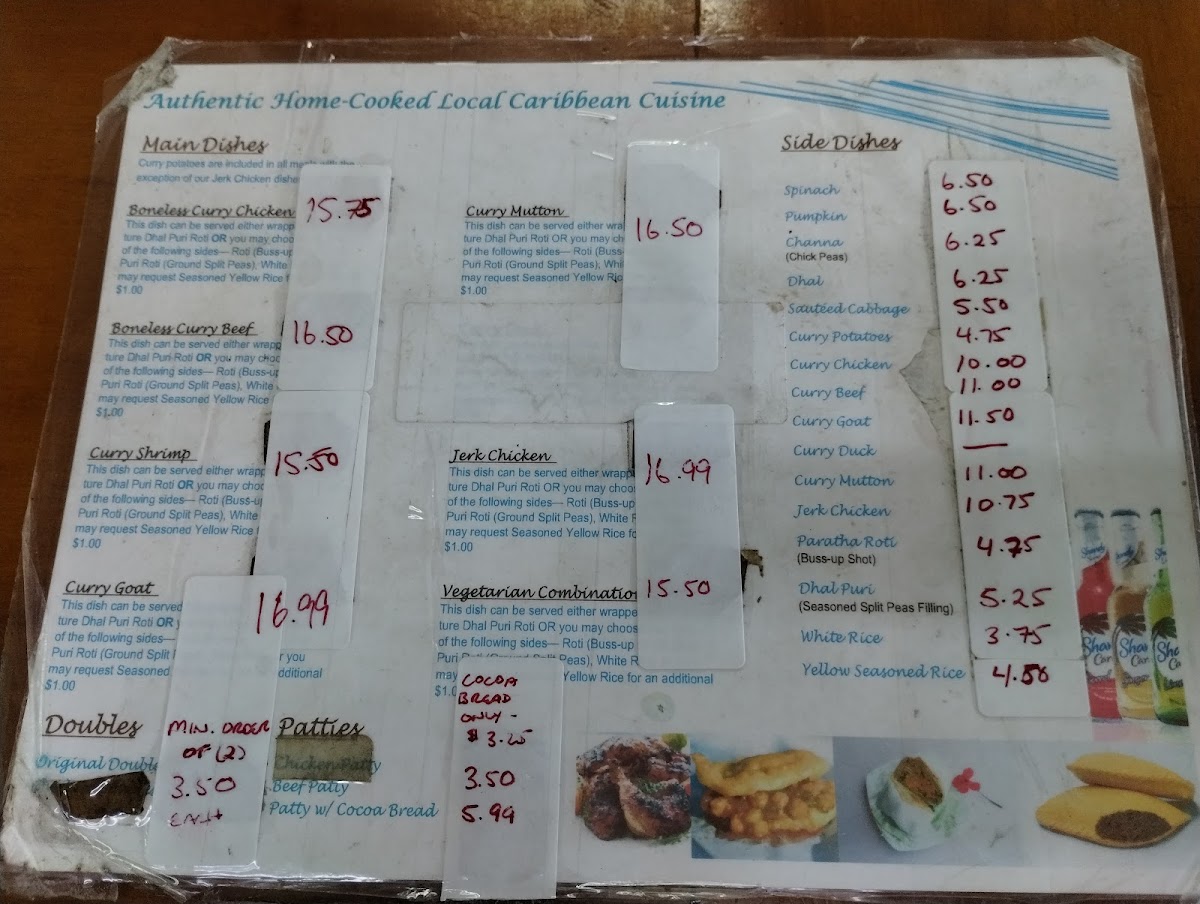 Authentic Home-Cooked Local Caribbean Cuisine
Main Dishes
Curry potatoes are included in all meals with the
exception of our Jerk Chicken dishe
Boneless Curry Chicken 15.75
This dish can be served either wrapp
ture Dhal Puri Roti OR you may choo
of the following sides— Roti (Buss-up
Puri Roti (Ground Split Peas), White
may request Seasoned Yellow Rice f
$1.00
Boneless Curry Beef 16.50
This dish can be served either wrapp
ture Dhal Puri Roti OR you may choo
of the following sides— Roti (Buss-up
Puri Roti (Ground Split Peas), White
may request Seasoned Yellow Rice
$1.00
Curry Shrimp 15.50
This dish can be served either wrapp
ture Dhal Puri Roti OR you may choo
of the following sides— Roti (Buss-u
Puri Roti (Ground Split Peas), White
may request Seasoned Yellow Rice f
$1.00
Curry Goat 16.99
This dish can be served
ture Dhal Puri Roti OR y
of the following sides—
Puri Roti (Ground Split P r you
may request Seasoned dditional
$1.00
Curry Mutton 16.50
This dish can be served either wrapp
ture Dhal Puri Roti OR you may ch
of the following sides— Roti (Buss-
Puri Roti (Ground Split Peas), Whi
may request Seasoned Yellow Ric
$1.00
Jerk Chicken 16.99
This dish can be served either wrapp
ture Dhal Puri Roti OR you may choo
of the following sides— Roti (Buss-up
Puri Roti (Ground Split Peas), White F
may request Seasoned Yellow Rice fo
$1.00
Vegetarian Combination 15.50
This dish can be served either wrappe
ture Dhal Puri Roti OR you may choos
of the following sides— Roti (Buss-up
Puri Roti (Ground Split Peas), White R
may Yellow Rice for an additional
$1.0
Doubles
Original Double
MIN. ORDER
OF (2)
3.50
EACH
Patties
Chicken Patty
Beef Patty 3.50
Patty w/ Cocoa Bread 5.99
COCOA
BREAD
ONLY -
$3.25
Side Dishes
Spinach 6.50
Pumpkin 6.50
Channa 6.25
(Chick Peas)
Dhal 6.25
Sautéed Cabbage 5.50
Curry Potatoes 4.75
Curry Chicken 10.00
Curry Beef 11.00
Curry Goat 11.50
Curry Duck —
Curry Mutton 11.00
Jerk Chicken 10.75
Paratha Roti 4.75
(Buss-up Shot)
Dhal Puri 5.25
(Seasoned Split Peas Filling)
White Rice 3.75
Yellow Seasoned Rice 4.50